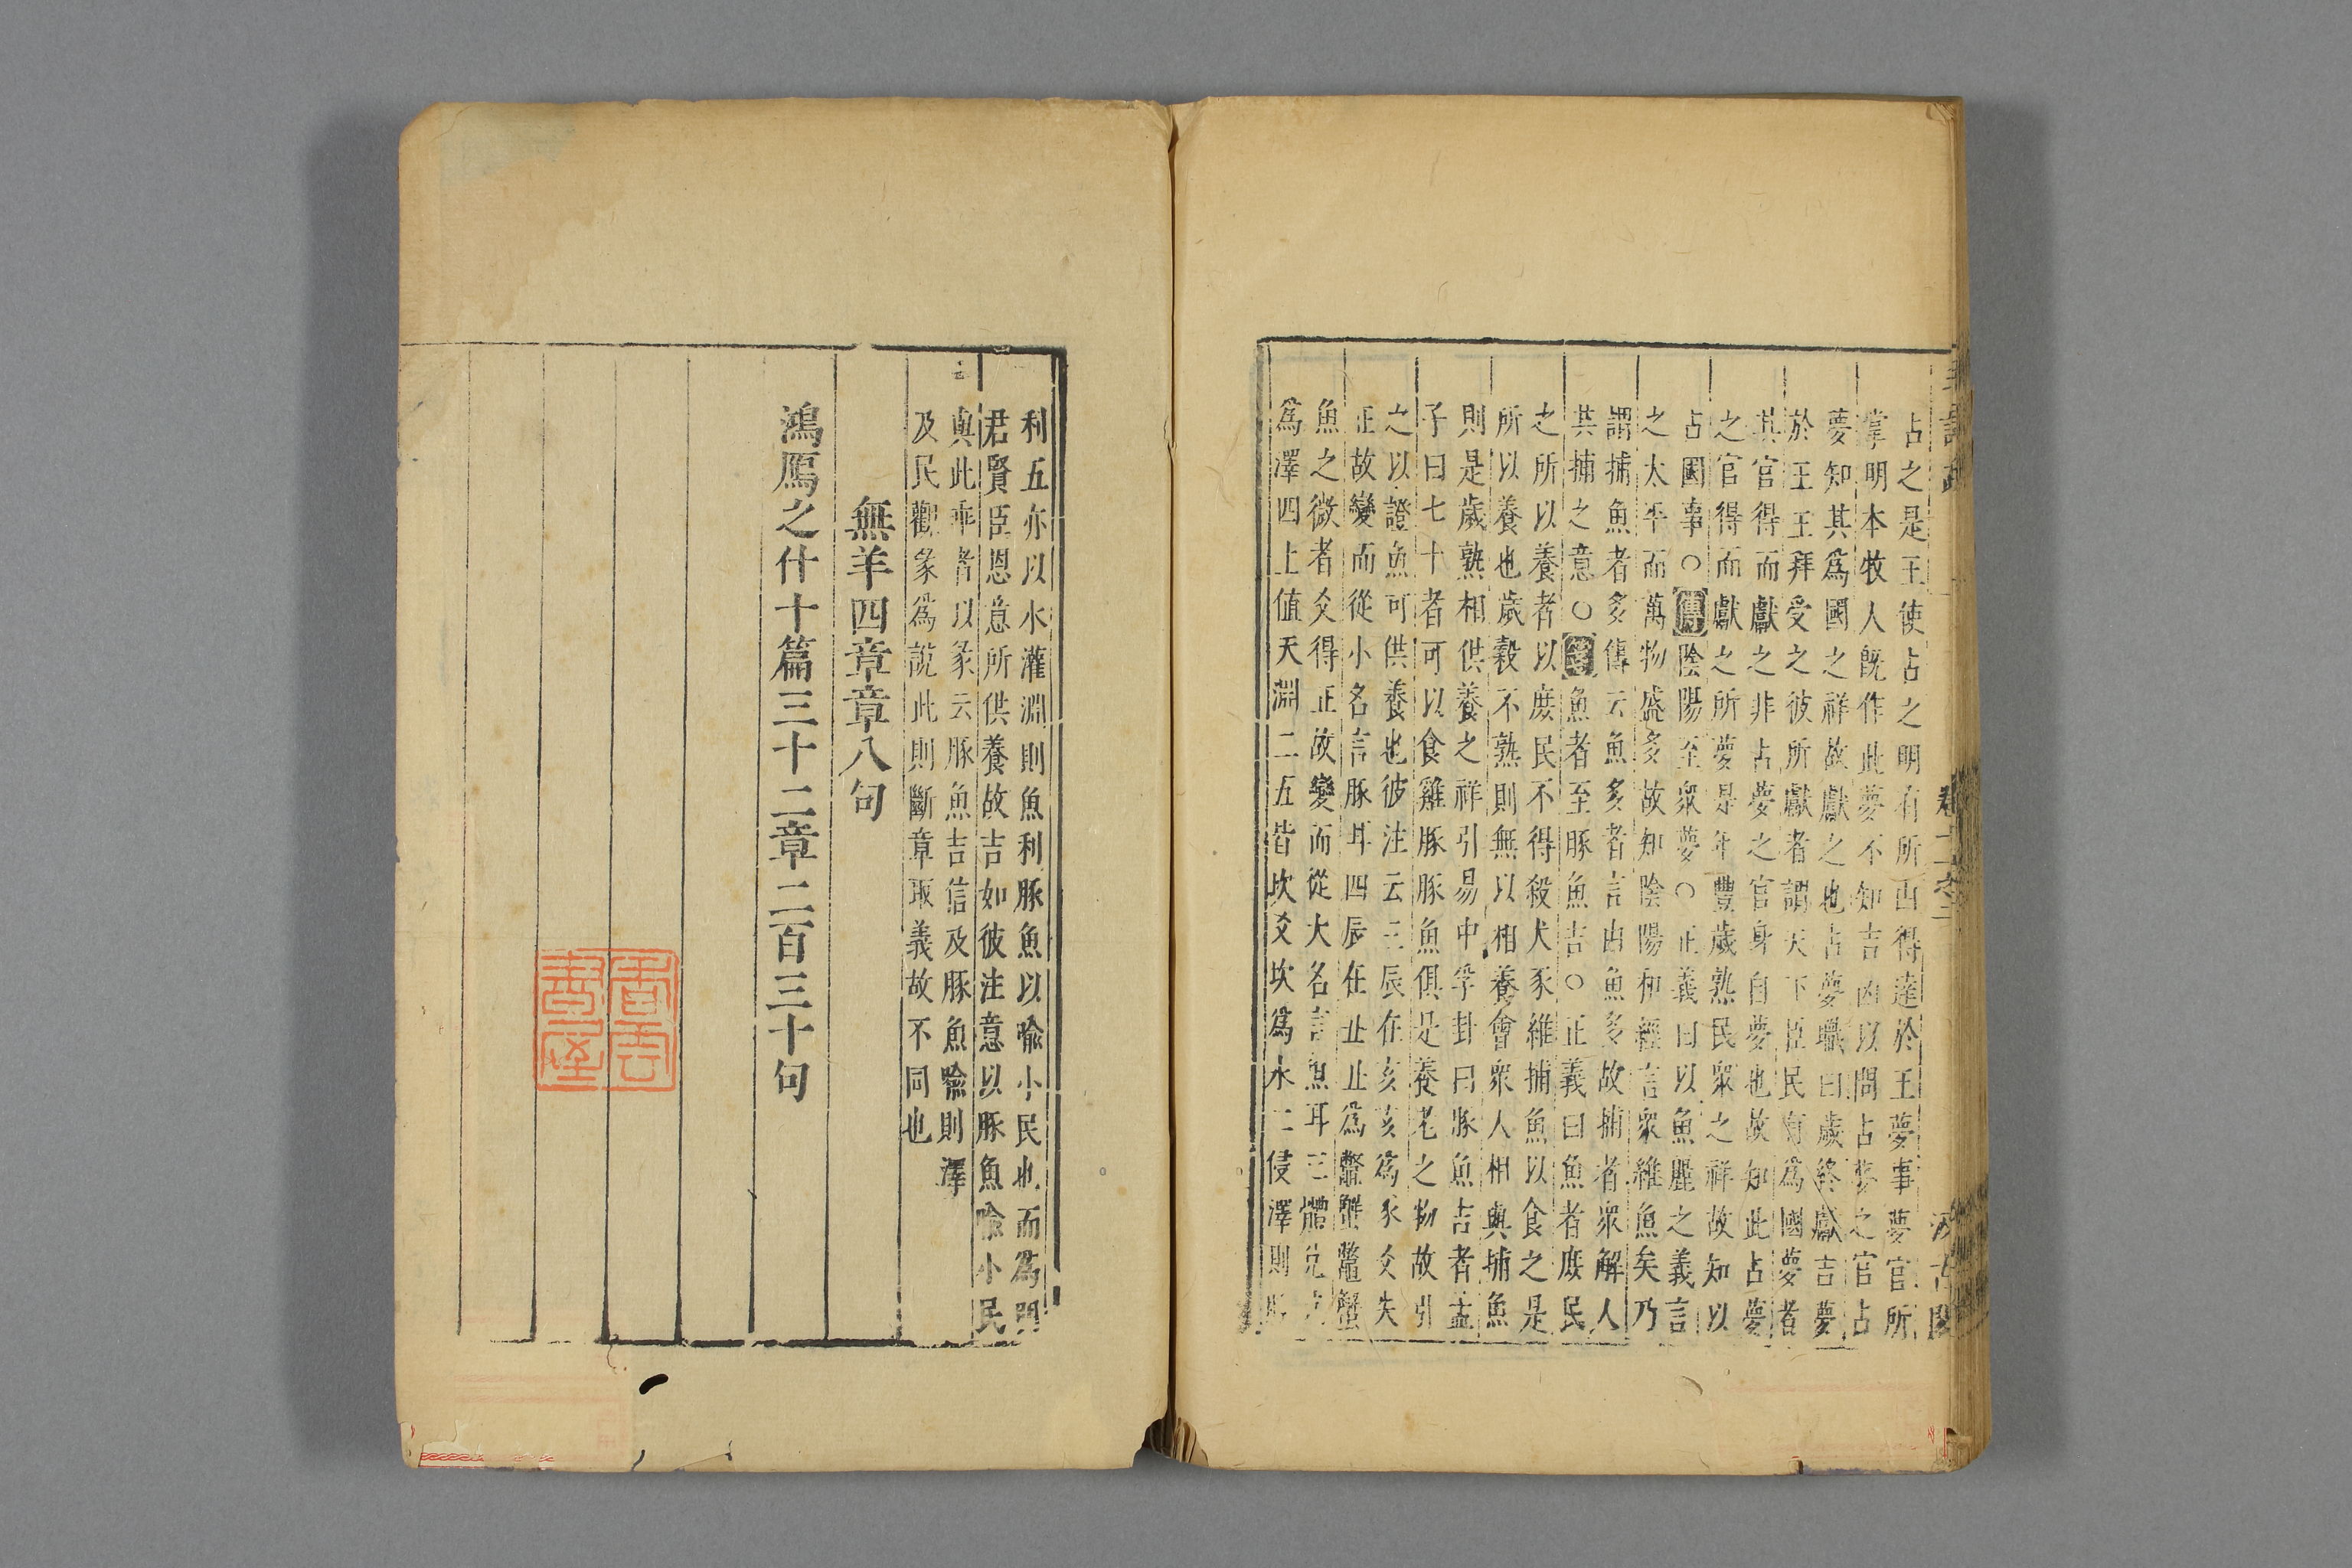 占之是王使占之明有所由得達於王夢事夢官所
掌明本牧人既作此夢不知吉凶以問占夢之官占
夢知其爲國之祥故獻之也占夢職曰歲終獻吉夢
於王王拜受之彼所獻者謂天下臣民有爲國夢者
其官得而獻之非占夢之官身自夢也故知此占夢
之官得而獻之所夢是年豐歲熟民衆之祥故知以
占國事○傳陰陽至衆夢○正義曰以魚麗之義言
之太平而萬物盛多故知陰陽和經言衆維魚矣乃
謂捕魚者多傳云魚多者言由魚多故捕者衆解人
共捕之意○箋魚者至豚魚吉○正義曰魚者庶民
之所以養者以庶民不得殺犬豕維捕魚以食之是
所以養也歲穀不熟則無以相養會衆人相與捕魚
則是歲熟相供養之祥引易中孚卦曰豚魚吉者孟
子曰七十者可以食雞豚豚魚俱是養老之物故引
之以證魚可供養也彼注云三辰在亥亥爲豕爻失
正故變而從小名言豚耳四辰在丑丑爲鼈蟹鼈蟹
魚之微者爻得正故變而從大名言魚耳三體兌兌
爲澤四上值天淵二五皆坎爻坎爲水二侵澤則豚
利五亦以水灌淵則魚利豚魚以喻小民也而爲明
君賢臣恩意所供養故吉如彼注意以豚魚喻小民
與此乖者以彖云豚魚吉信及豚魚喻則澤
及民觀彖爲說此則斷章取義故不同也
無羊四章章八句
鴻鴈之什十篇三十二章二百三十句